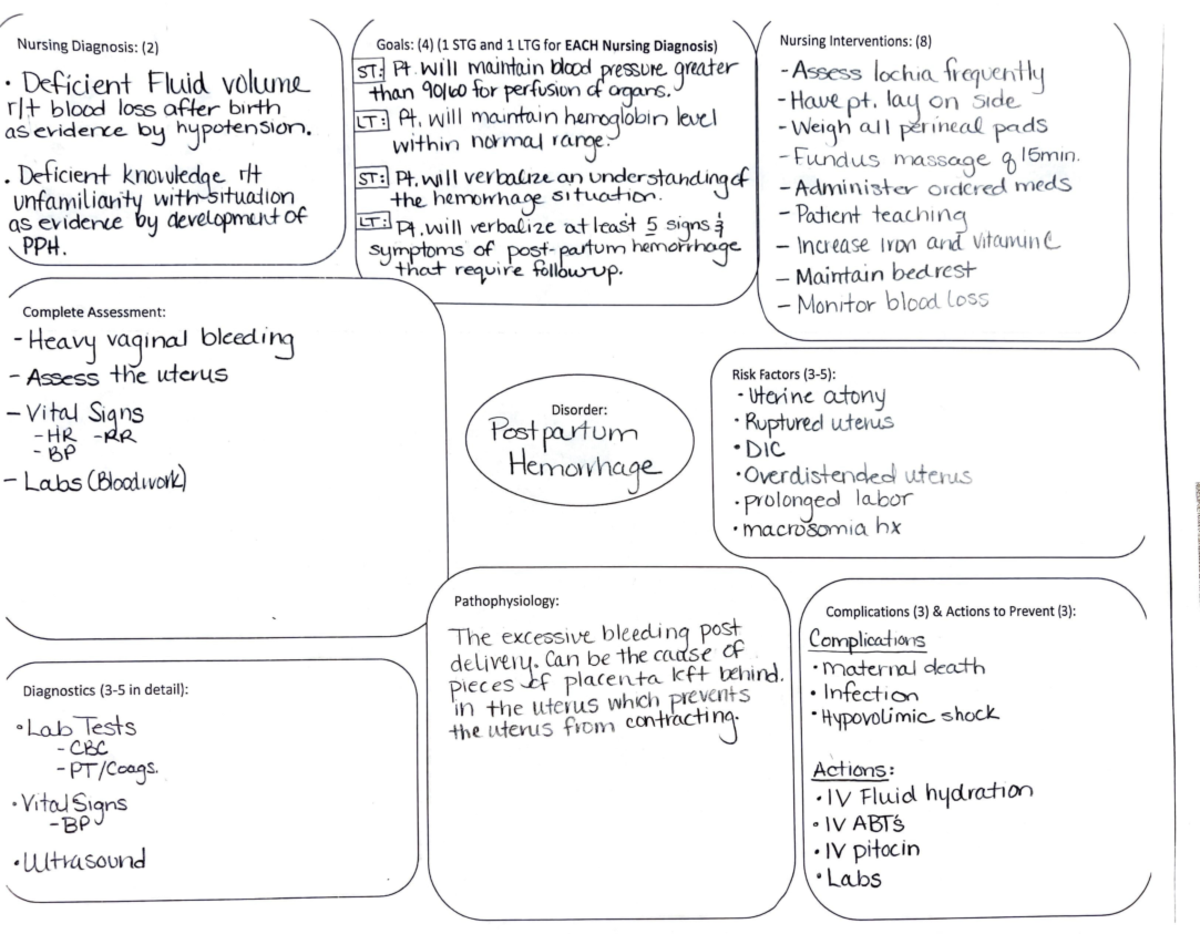 Nursing Diagnosis: (2)
• Deficient Fluid volume
r/t blood loss after birth
as evidence by hypotension.
• Deficient knowledge r/t
unfamilianty with situation
as evidence by development of
PPH.
Goals: (4) (1 STG and 1 LTG for EACH Nursing Diagnosis)
ST: Pt. will maintain blood pressure greater
than 90/60 for perfusion of organs.
LT: Pt. will maintain hemoglobin level
within normal range.
ST: Pt. will verbalize an understanding of
the hemorrhage situation.
LT: Pt. will verbalize at least 5 signs &
symptoms of post-partum hemorrhage
that require followup.
Nursing Interventions: (8)
- Assess lochia frequently
- Have pt. lay on side
- Weigh all perineal pads
- Fundus massage q 15min.
- Administer ordered meds
- Patient teaching
- Increase Iron and Vitamin C
- Maintain bedrest
- Monitor blood loss
Complete Assessment:
- Heavy vaginal bleeding
- Assess the uterus
- Vital Signs
- HR - RR
- BP
- Labs (Bloodwork)
Disorder:
Postpartum
Hemorrhage
Risk Factors (3-5):
• Uterine atony
• Ruptured uterus
• DIC
• Overdistended uterus
• prolonged labor
• macrosomia hx
Diagnostics (3-5 in detail):
• Lab Tests
- CBC
- PT/Coags.
• Vital Signs
- BP
• Ultrasound
Pathophysiology:
The excessive bleeding post
delivery. Can be the cause of
pieces of placenta left behind.
in the uterus which prevents
the uterus from contracting.
Complications (3) & Actions to Prevent (3):
Complications
• maternal death
• Infection
• Hypovolimic shock
Actions:
• IV Fluid hydration
• IV ABTs
• IV pitocin
• Labs